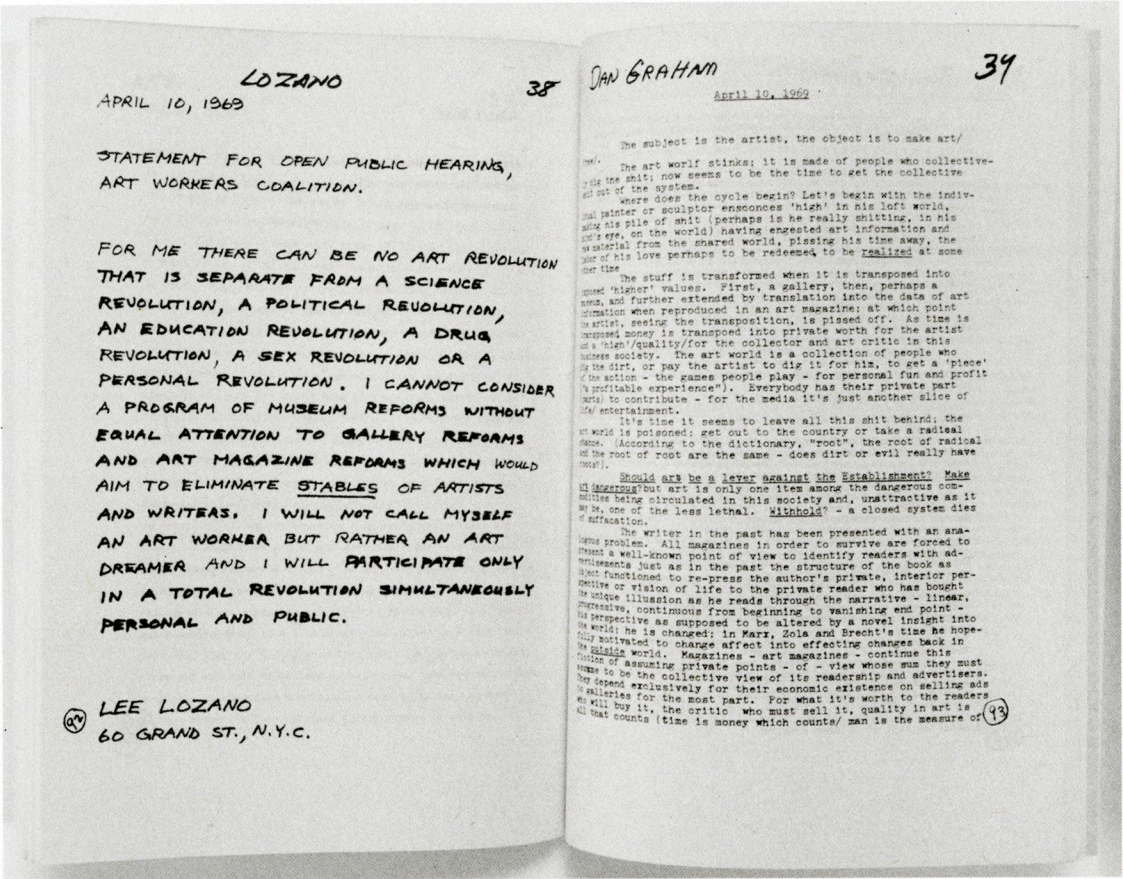 LOZANO
38
APRIL 10, 1969
STATEMENT FOR OPEN PUBLIC HEARING,
ART WORKERS COALITION.
FOR ME THERE CAN BE NO ART REVOLUTION
THAT IS SEPARATE FROM A SCIENCE
REVOLUTION, A POLITICAL REVOLUTION,
AN EDUCATION REVOLUTION, A DRUG
REVOLUTION, A SEX REVOLUTION OR A
PERSONAL REVOLUTION. I CANNOT CONSIDER
A PROGRAM OF MUSEUM REFORMS WITHOUT
EQUAL ATTENTION TO GALLERY REFORMS
AND ART MAGAZINE REFORMS WHICH WOULD
AIM TO ELIMINATE STABLES OF ARTISTS
AND WRITERS. I WILL NOT CALL MYSELF
AN ART WORKER BUT RATHER AN ART
DREAMER AND I WILL PARTICIPATE ONLY
IN A TOTAL REVOLUTION SIMULTANEOUSLY
PERSONAL AND PUBLIC.
LEE LOZANO
92
60 GRAND ST., N.Y.C.
DAN GRAHAM
39
April 10, 1969
The subject is the artist, the object is to make art/
The art worlf stinks; it is made of people who collective-
dig the shit; now seems to be the time to get the collective
out of the system.
Where does the cycle begin? Let's begin with the indiv-
painter or sculptor ensconces 'high' in his loft world,
his pile of shit (perhaps is he really shitting, in his
eye, on the world) having engested art information and
material from the shared world, pissing his time away, the
of his love perhaps to be redeemed, to be realized at some
time
The stuff is transformed when it is transposed into
'higher' values. First, a gallery, then, perhaps a
and further extended by translation into the data of art
when reproduced in an art magazine; at which point
artist, seeing the transposition, is pissed off. As time is
money is transpoed into private worth for the artist
a 'high'/quality/for the collector and art critic in this
society. The art world is a collection of people who
the dirt, or pay the artist to dig it for him, to get a 'piece'
the action - the games people play - for personal fun and profit
profitable experience"). Everybody has their private part
to contribute - for the media it's just another slice of
life/ entertainment.
It's time it seems to leave all this shit behind; the
world is poisoned; get out to the country or take a radical
(According to the dictionary, "root", the root of radical
the root of root are the same - does dirt or evil really have
Should art be a lever against the Establishment? Make
dangerous? but art is only one item among the dangerous com-
being circulated in this society and, unattractive as it
be, one of the less lethal. Withhold? - a closed system dies
of suffacation.
The writer in the past has been presented with an ana-
problem. All magazines in order to survive are forced to
a well-known point of view to identify readers with ad-
just as in the past the structure of the book as
functioned to re-press the author's private, interior per-
or vision of life to the private reader who has bought
the unique illussion as he reads through the narrative - linear,
progressive, continuous from beginning to vanishing end point -
perspective as supposed to be altered by a novel insight into
world: he is changed; in Marx, Zola and Brecht's time he hope-
fully motivated to change affect into effecting changes back in
the outside world. Magazines - art magazines - continue this
fiction of assuming private points - of - view whose sum they must
to be the collective view of its readership and advertisers.
They depend exclusively for their economic existence on selling ads
galleries for the most part. For what it's worth to the readers
who will buy it, the critic who must sell it, quality in art is
all that counts (time is money which counts/ man is the measure of
93